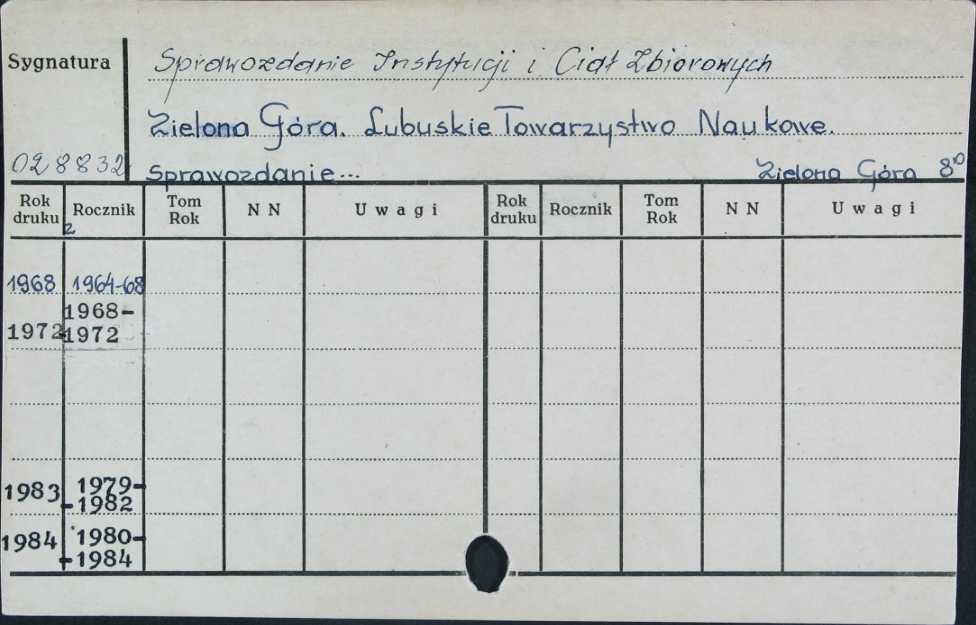 Sygnatura
Sprawozdanie Instytucji i Ciał Zbiorowych
Zielona Góra. Lubuskie Towarzystwo Naukowe.
028832
sprawozdanie... Zielona Góra 8º
Rok druku Rocznik Tom Rok NN Uwagi Rok druku Rocznik Tom Rok NN Uwagi
2
1968 1964-68
1968-
1972 -1972
1979-
1983 -1982
1984 1980-
-1984